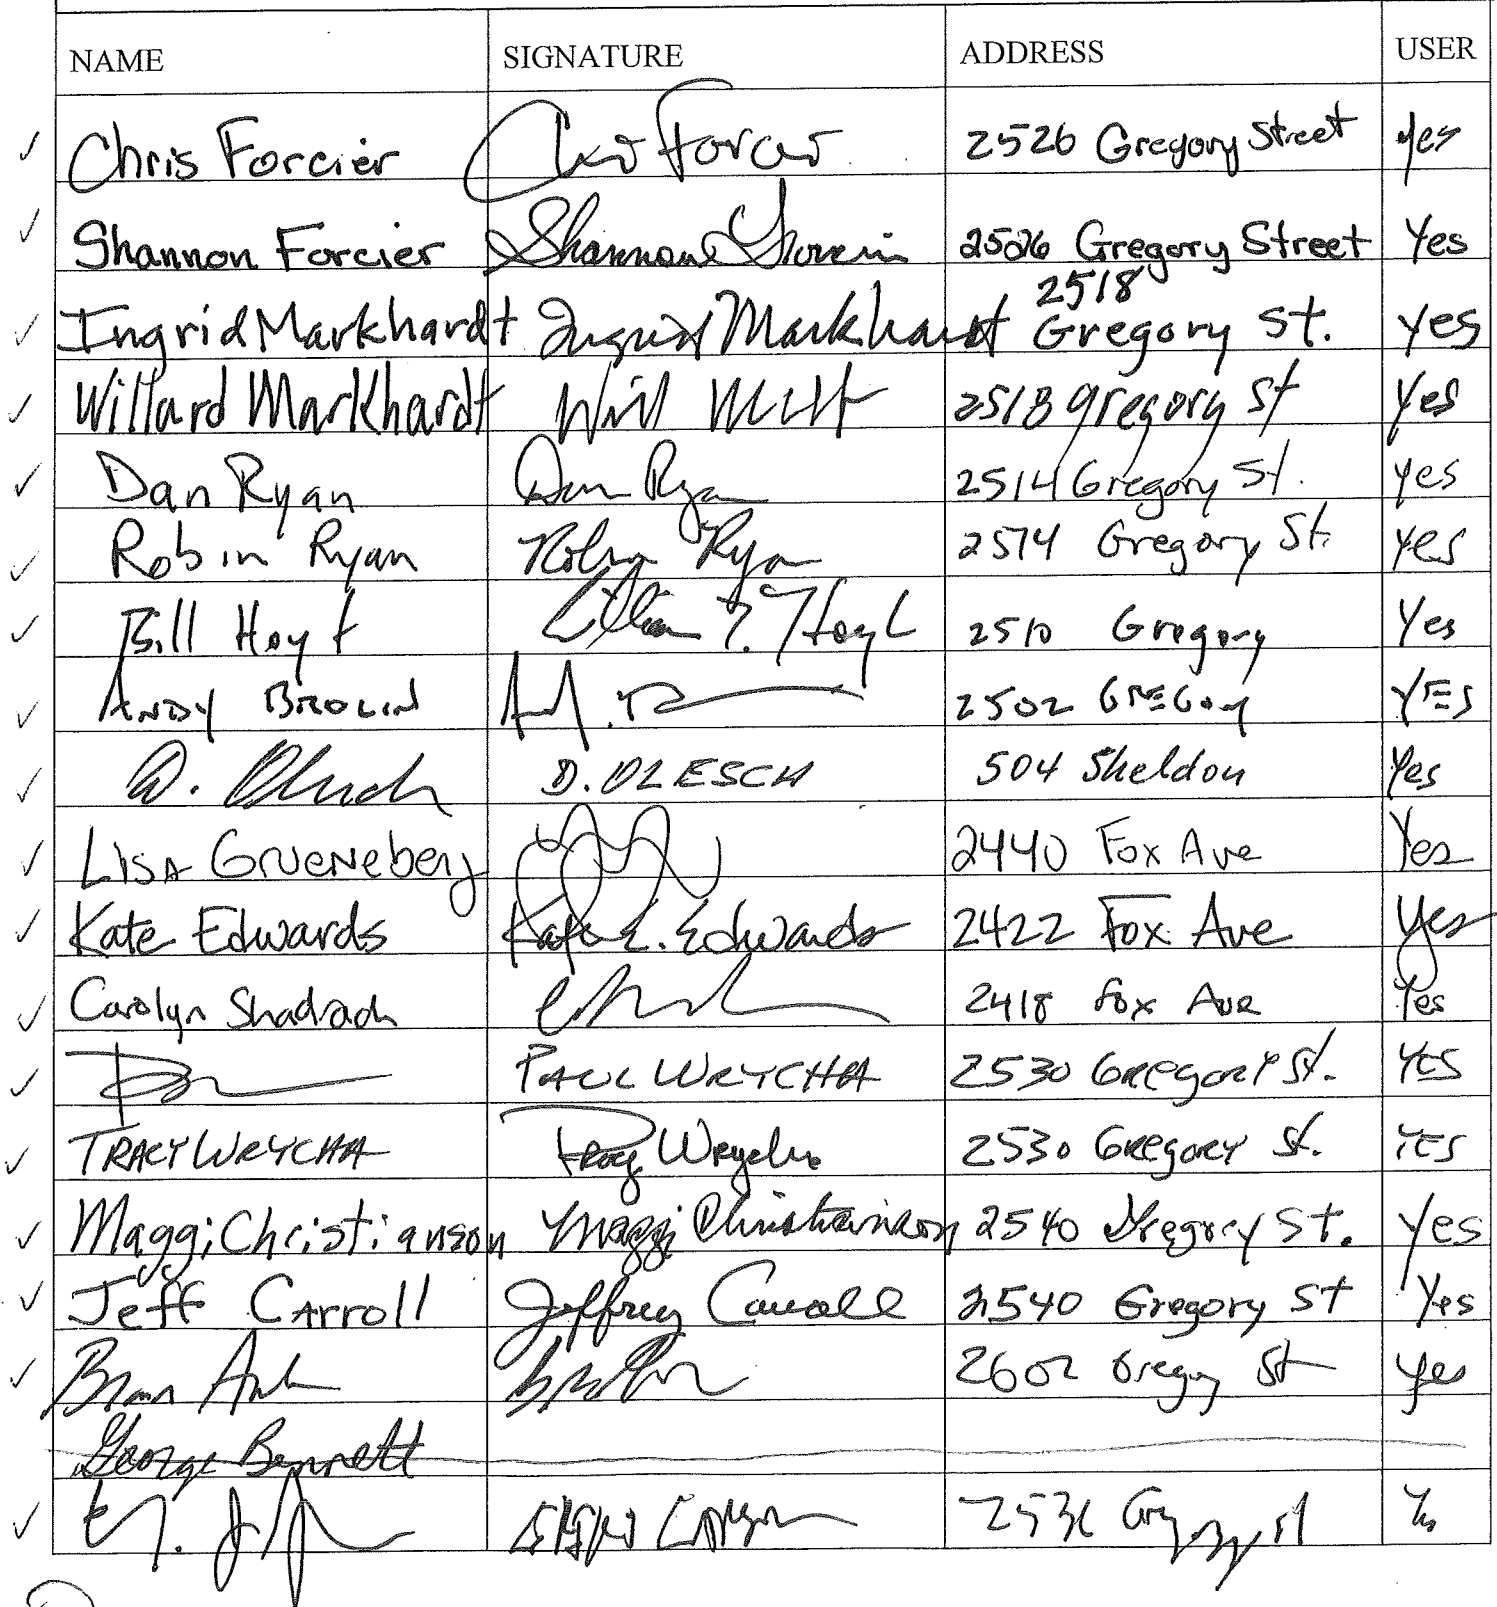 NAME SIGNATURE ADDRESS USER
✓ Chris Forcier Chris Forcier 2526 Gregory Street yes
✓ Shannon Forcier Shannon Forcier 2526 Gregory Street Yes
2518
✓ Ingrid Markhardt Ingrid Markhardt Gregory St. yes
✓ Willard Markhardt Will 2518 gregory st yes
✓ Dan Ryan Dan Ryan 2514 Gregory St. yes
✓ Robin Ryan Robin Ryan 2514 Gregory St. yes
✓ Bill Hoyt Hoyt 2510 Gregory Yes
✓ ANDY BROLIN 2502 YES
✓ D. OLESCH 504 Sheldon Yes
✓ LISA GrueNeberg 2440 Fox Ave Yes
✓ Kate Edwards Kate E. Edwards 2422 Fox Ave yes
✓ Carolyn Shadrach 2418 Fox Ave Yes
✓ PAUL WRYCHA 2530 GREGORY St. YES
✓ TRACY WRYCHA Tracy Wrycha 2530 GREGORY St. YES
✓ Maggi Christianson Maggi Christianson 2540 Gregory St. Yes
✓ Jeff CArroll Jeffrey Carroll 2540 Gregory St Yes
✓ 2602 Gregory St yes
George Bennett
✓